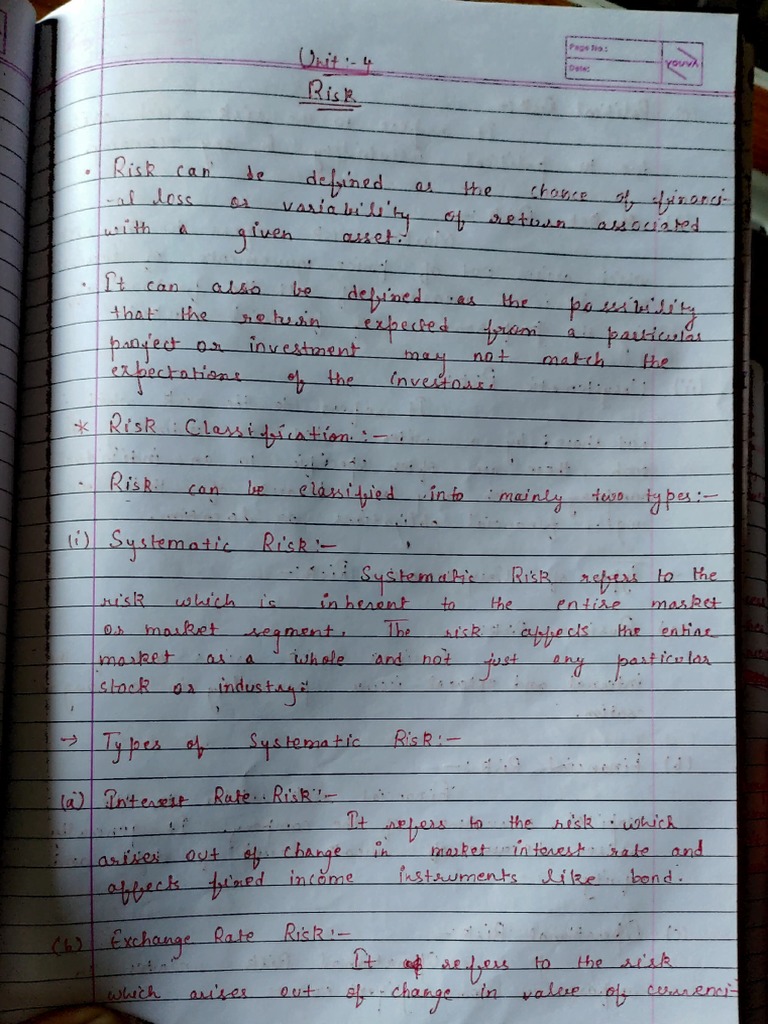 Page No.:
Date:
youva
Unit :- 4
Risk
• Risk can be defined as the chance of financi-
-al loss or variability of return associated
with a given asset.
• It can also be defined as the possibility
that the return expected from a particular
project or investment may not match the
expectations of the investors.
* Risk Classification :-
• Risk can be classified into mainly two types:-
(i) Systematic Risk:-
Systematic Risk refers to the
risk which is inherent to the entire market
or market segment. The risk affects the entire
market as a whole and not just any particular
stock or industry.
→ Types of Systematic Risk:-
(a) Interest Rate Risk:-
It refers to the risk which
arises out of change in market interest rate and
affects fixed income instruments like bond.
(b) Exchange Rate Risk:-
It refers to the risk
which arises out of change in value of currenci-